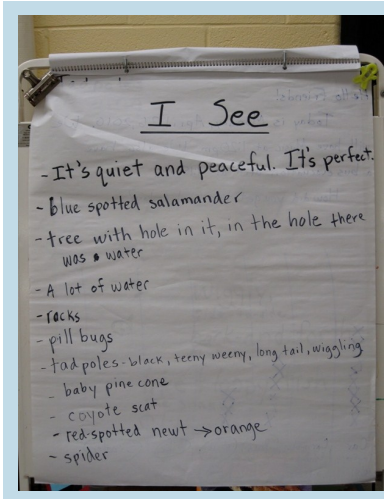 I See
- It's quiet and peaceful. It's perfect.
- blue spotted salamander
- tree with hole in it, in the hole there
was water
- A lot of water
- rocks
- pill bugs
- tadpoles - black, teeny weeny, long tail, wiggling
- baby pine cone
- coyote scat
- red-spotted newt → orange
- spider